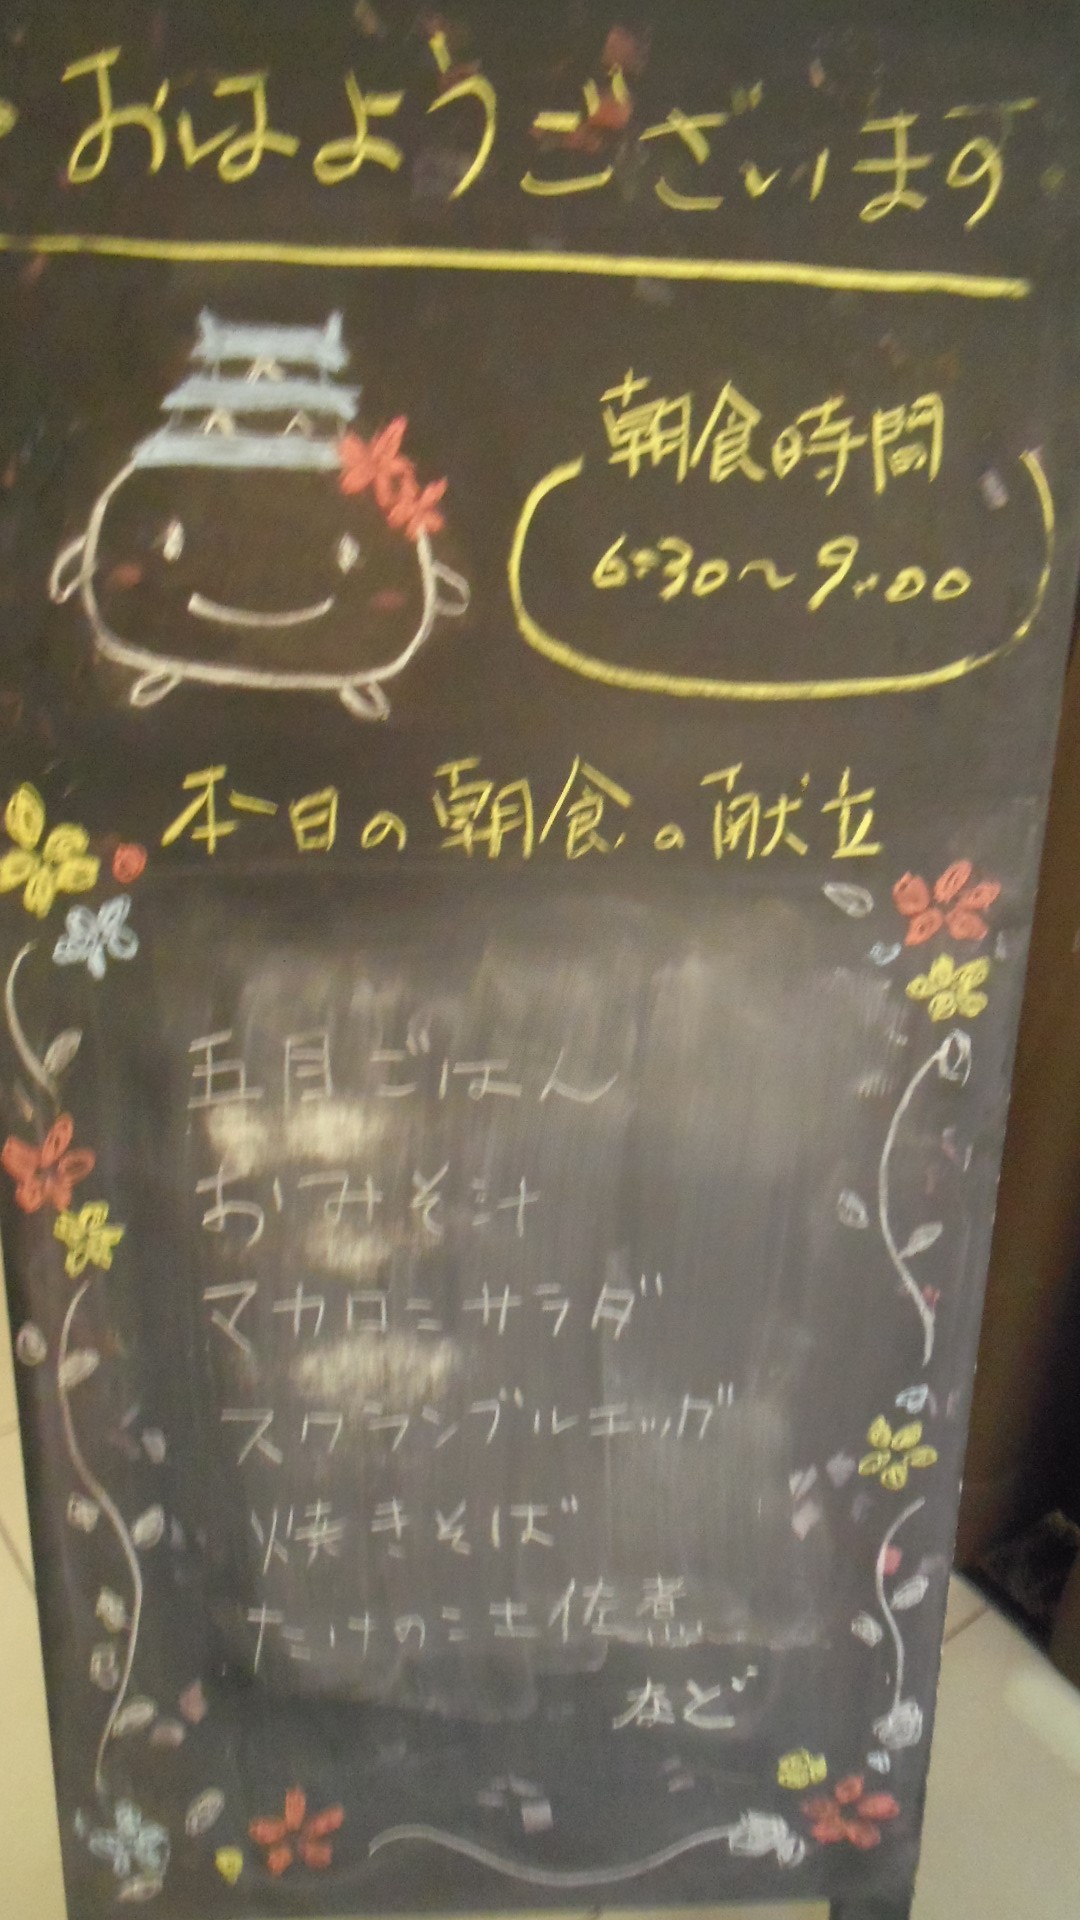 おはようございます
朝食時間
6:30～9:00
本日の朝食の献立
五目ごはん
おみそ汁
マカロニサラダ
スクランブルエッグ
焼きそば
たけのこ土佐煮
など